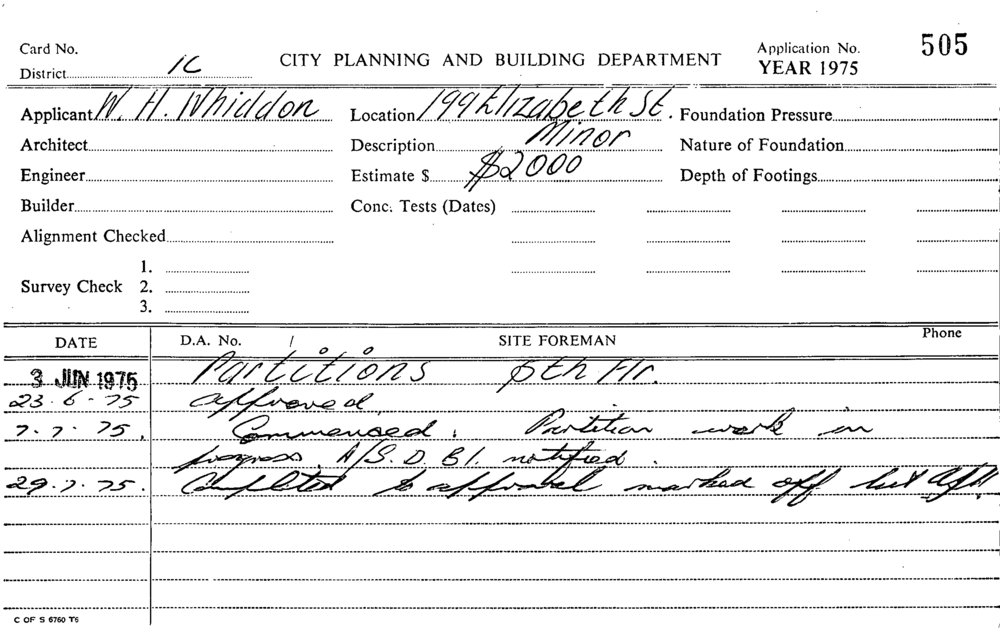 Card No.
District 1C
CITY PLANNING AND BUILDING DEPARTMENT
Application No. 505
YEAR 1975
Applicant W. H. Whiddon
Location 199 Elizabeth St.
Foundation Pressure
Architect
Description Minor
Nature of Foundation
Engineer
Estimate $ $2000
Depth of Footings
Builder
Conc. Tests (Dates)
Alignment Checked
Survey Check
1.
2.
3.
DATE
D.A. No. /
SITE FOREMAN
Phone
3 JUN 1975 Partitions Flr.
23.6.75 approved.
7.7.75. Commenced. Partition work in
progress. A/S.D.B1. notified.
29.7.75. Completed to approval marked off
C OF S 6760 T6